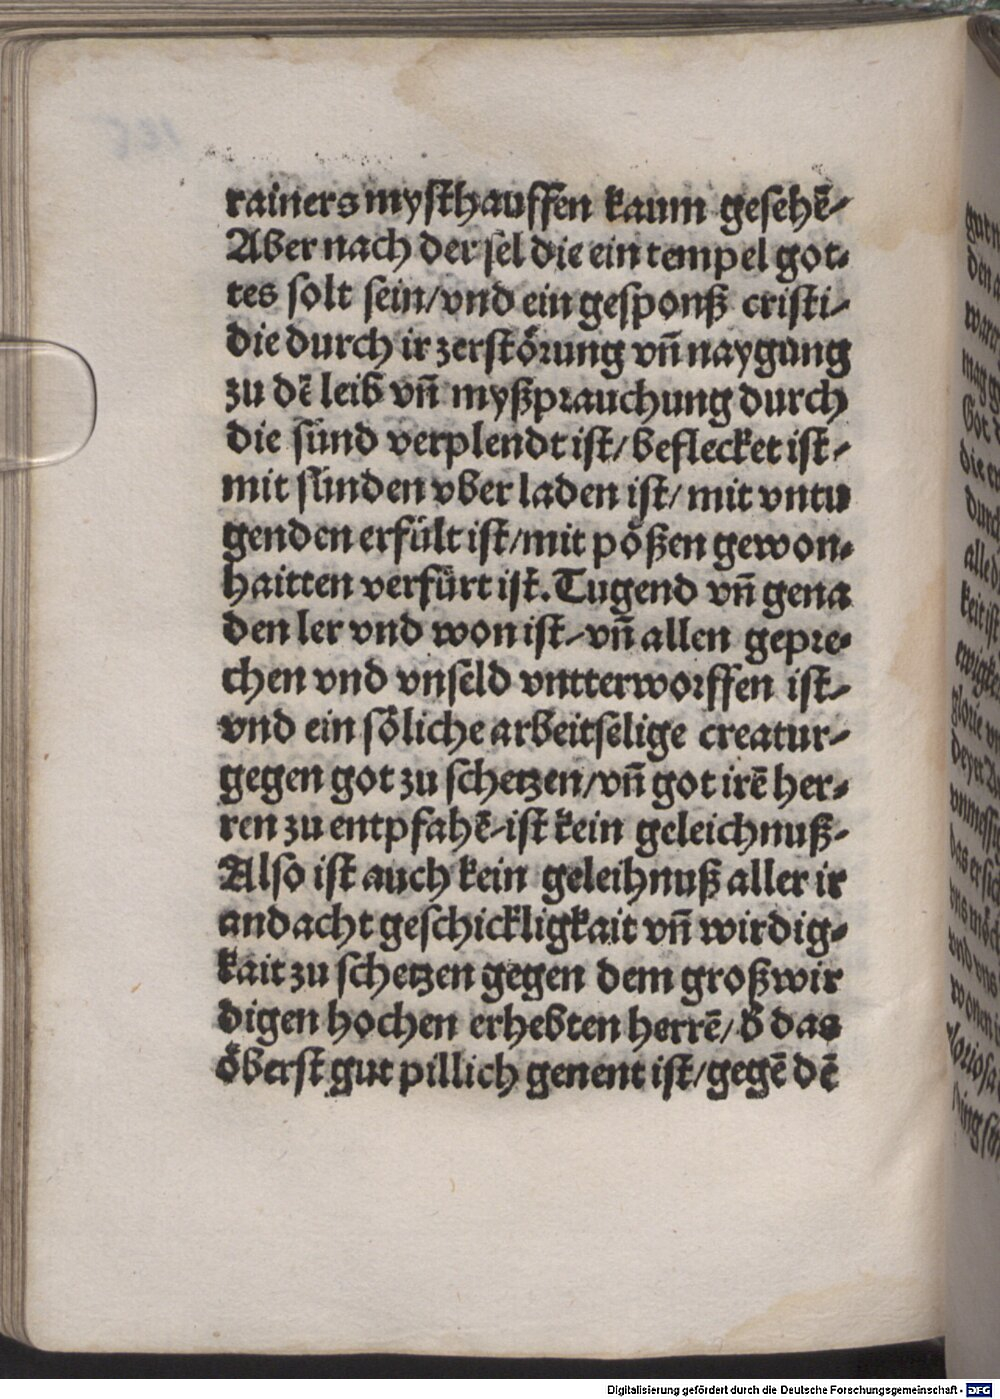 rainers mysthauffen kaum gesehē-
Aber nach der sel die ein tempel got-
tes solt sein/vnd ein gesponß cristi-
die durch ir zerstörung vn̄ naygung
zu dē leib vn̄ myßprauchung durch
die sünd verplendt ist/beflecket ist-
mit sünden vber laden ist/mit vntu
genden erfült ist/mit pößen gewon-
haitten verfürt ist. Tugend vn̄ gena
den ler vnd won ist-vn̄ allen gepre-
chen vnd vnseld vntterworffen ist-
vnd ein söliche arbeitselige creatur-
gegen got zu schetzen/vn̄ got irē her-
ren zu entpfahē-ist kein geleichnuß-
Also ist auch kein geleihnuß aller ir
andacht geschickligkait vn̄ wirdig-
kait zu schetzen gegen dem großwir
digen hochen erhebten herrē/d̄ das
öberst gut pillich genent ist/gegē dē
Digitalisierung gefördert durch die Deutsche Forschungsgemeinschaft - DFG